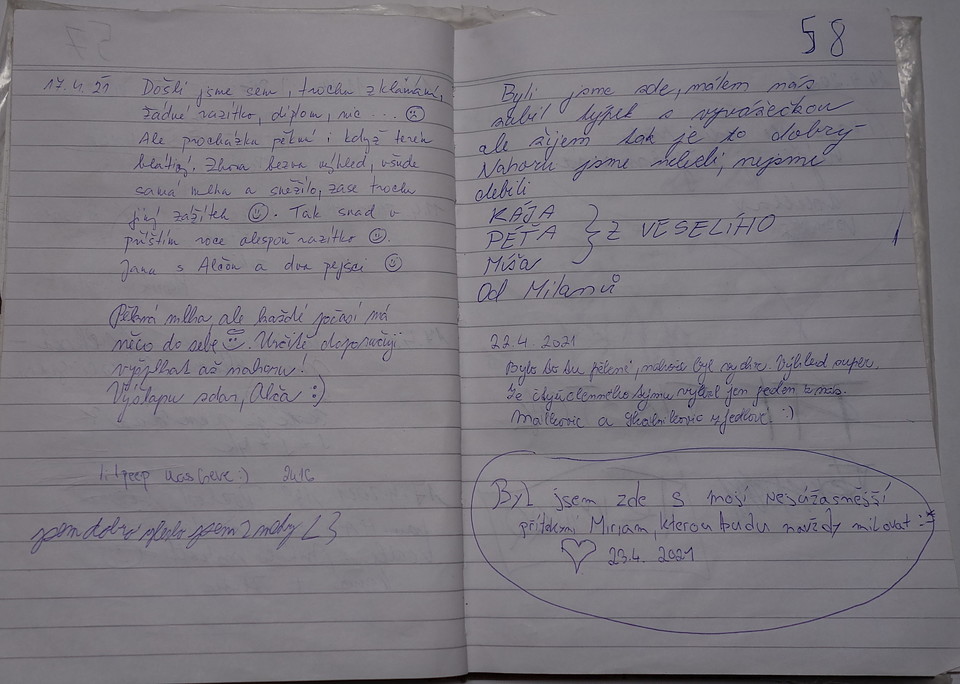 17.4.21 Došli jsme sem, trochu zklamání,
žádné razítko, diplom, nic ... ☹
Ale procházka pěkná i když terén
blátivý. Zhora bezva výhled, všude
samá mlha a sněžilo, zase trochu
jiný zážitek ☺. Tak snad v
příštím roce alespoň razítko ☺.
Jana s Alčou a dva pejsci ☺
Pěkná mlha, ale každé počasí má
něco do sebe ☺. Určitě doporučuji
vyšplhat až nahoru!
Výšlapu zdar, Alča :)
peep was here :)
58
Byli jsme zde, málem nás
zabil týpek s vyvážečkou
ale žijem tak je to dobrý
Nahoru jsme nelezli, nejsme
debili
KÁJA
PÉŤA } Z VESELÍHO
Míša
Od Milanů
22.4. 2021
Bylo to tu pěkné, nahoře byl vychr. Výhled super.
Ze čtyřčlenného týmu vylezl jen jeden z nás.
a z Jedlové. :)
Byl jsem zde s mojí nejúžasnější
přítelkyní Mirjam, kterou budu navždy milovat :*
♡ 23.4. 2021